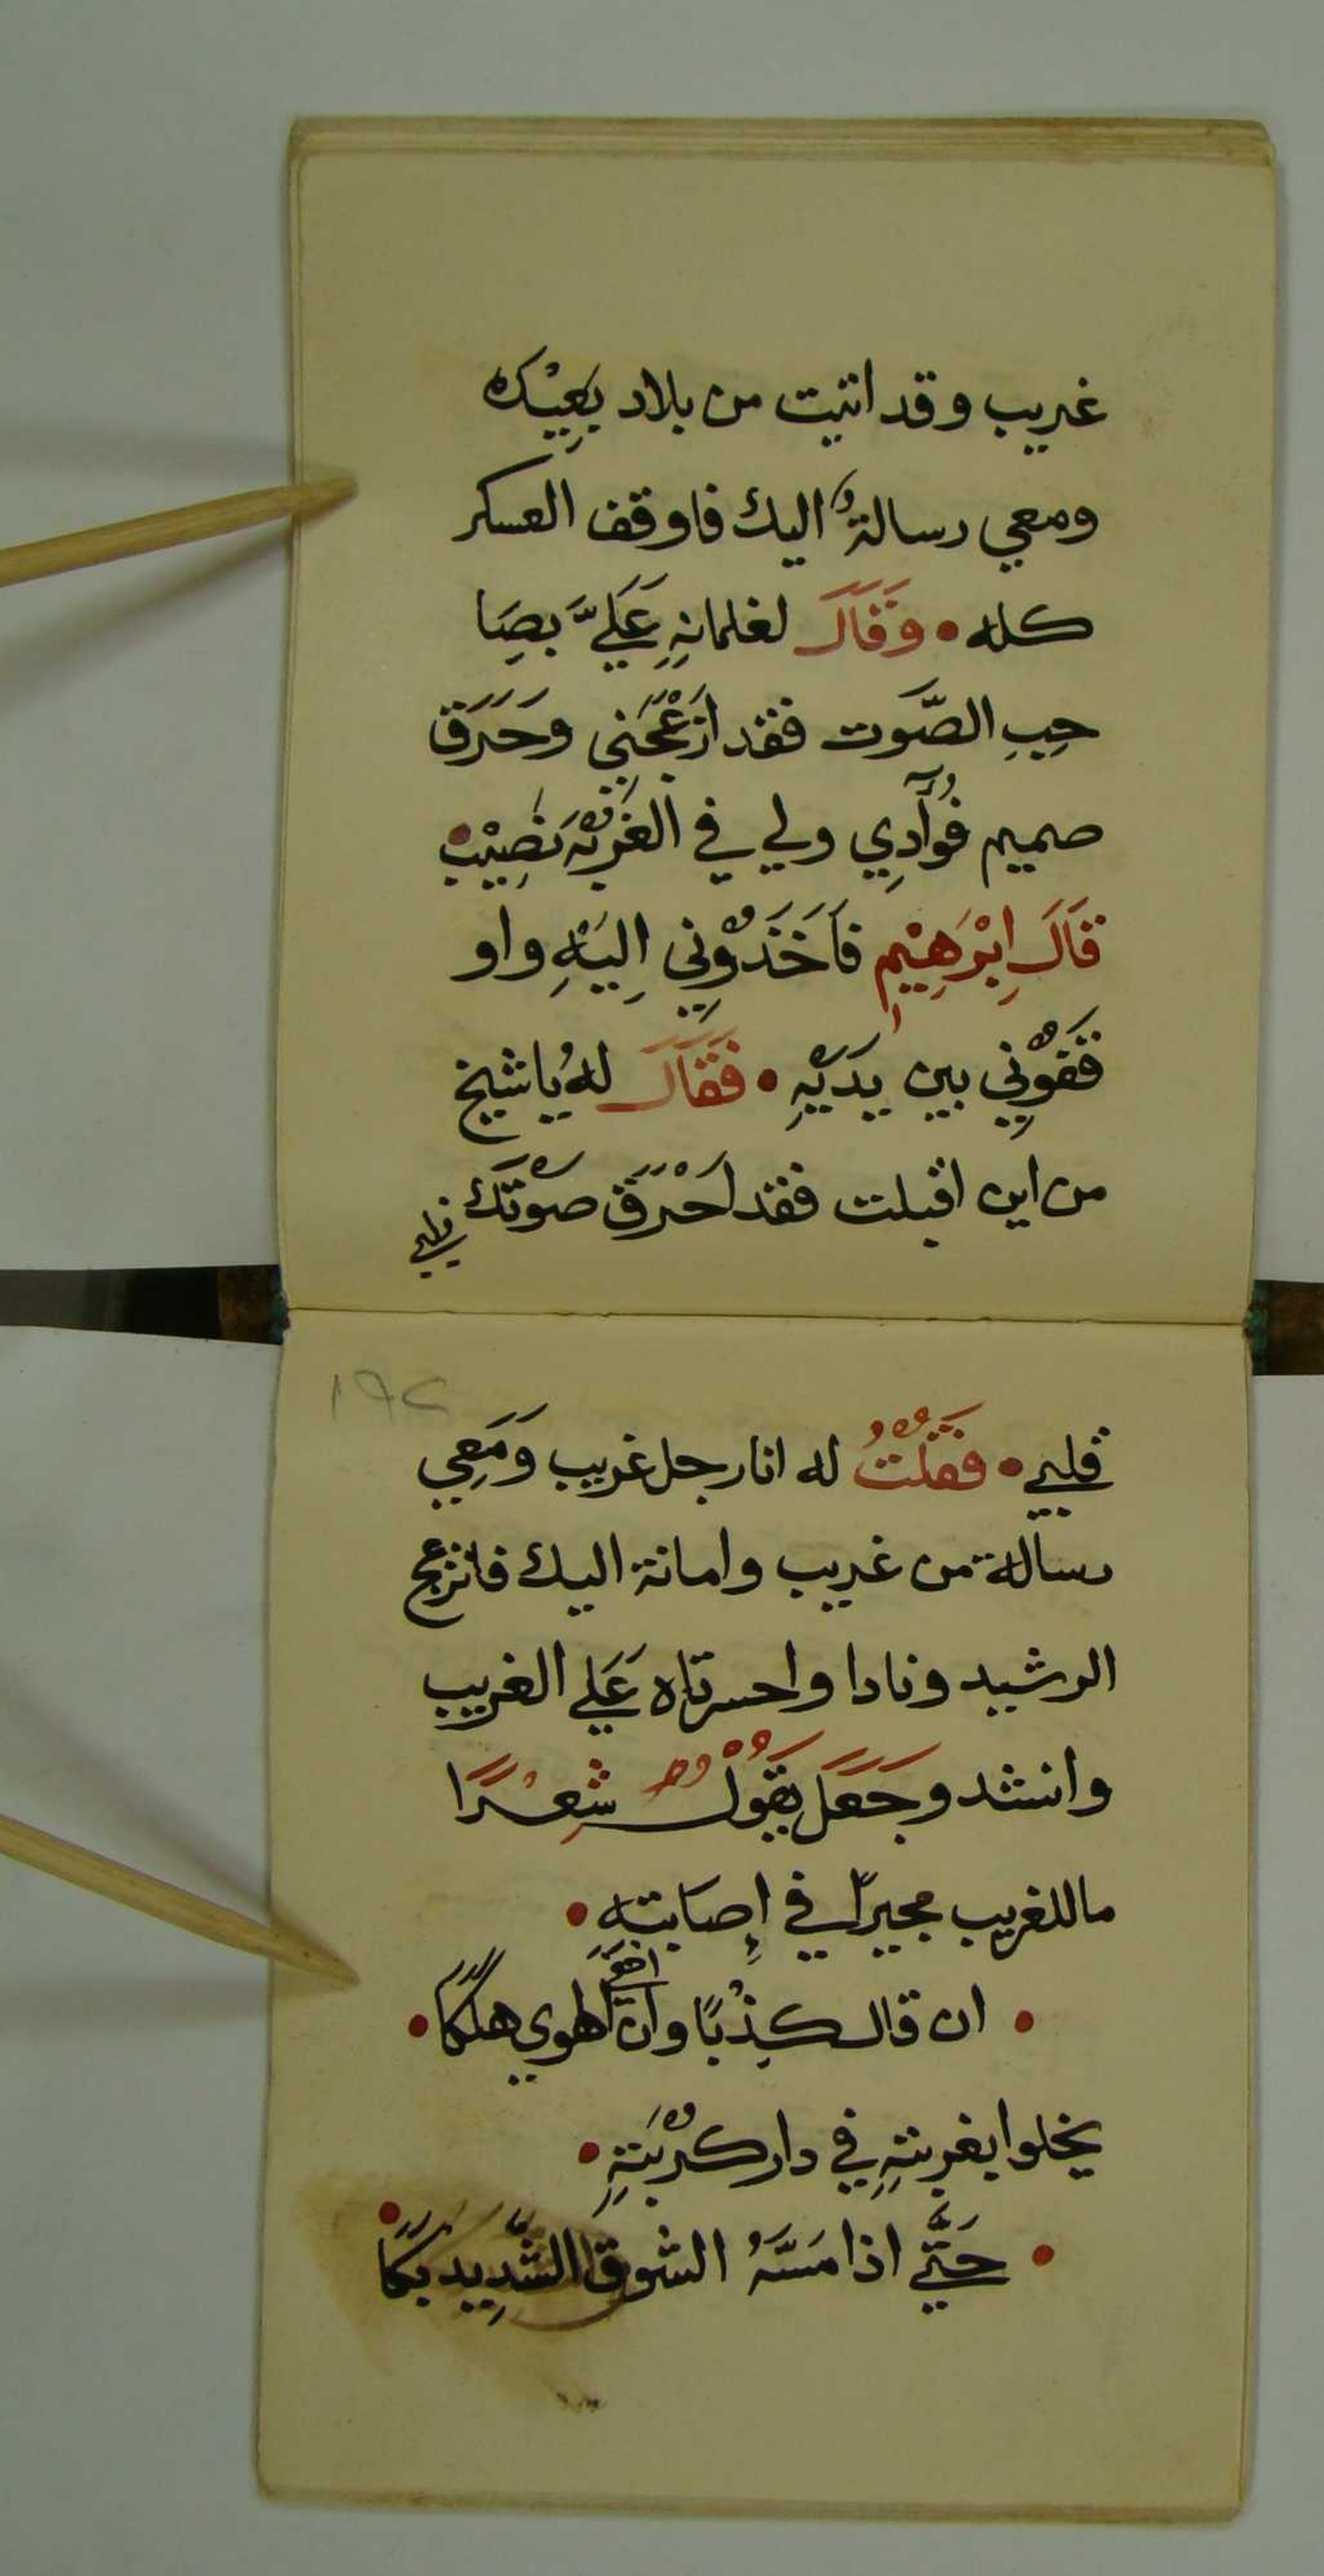 غريب وقد اتيت من بلاد بَعِيْده
ومعي رسالةٌ اليك فاوقف العسكر
كله • وَقَالَ لغلمانِهِ عَلَيَّ بصَِا
حِبِ الصَّوت فقد ازْعَجَنِي وحَرَق
صميم فُوآدِي ولي في الغرْبَةِ نَصِيْب •
قَالَ اِبْرَهِيْم فَاَخَذُوْنِي اِليَْهِ واو
قَفُوْنِي بين يَدَيْهِ • فَقَالَ لهُ يا شيخ
من اين اقبلت فقد اَحْرَق صَوْتَك
قلبي
١٩٢
قلبي • فَقُلْتُ له انا رجل غريب وَمَعِي
رسالة من غريب وامانة اليك فانزعج
الرشيد ونادا واحسرتاه عَلي الغريب
وانشد وجَعَلَ يَقُوْلُ شِعْرًا
ما للغريب مجيرًا في اِصابته •
• ان قال كِذْبًا وان الهوي هلكًا •
يخلوا بغربتهِ في دار كُرْبَتِهِ •
• حَتَّي اذا مَسَّهُ الشوق الشَّدِيد بكًا •